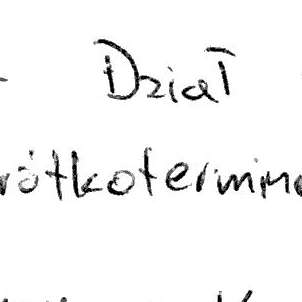 Dział
rótkotermino